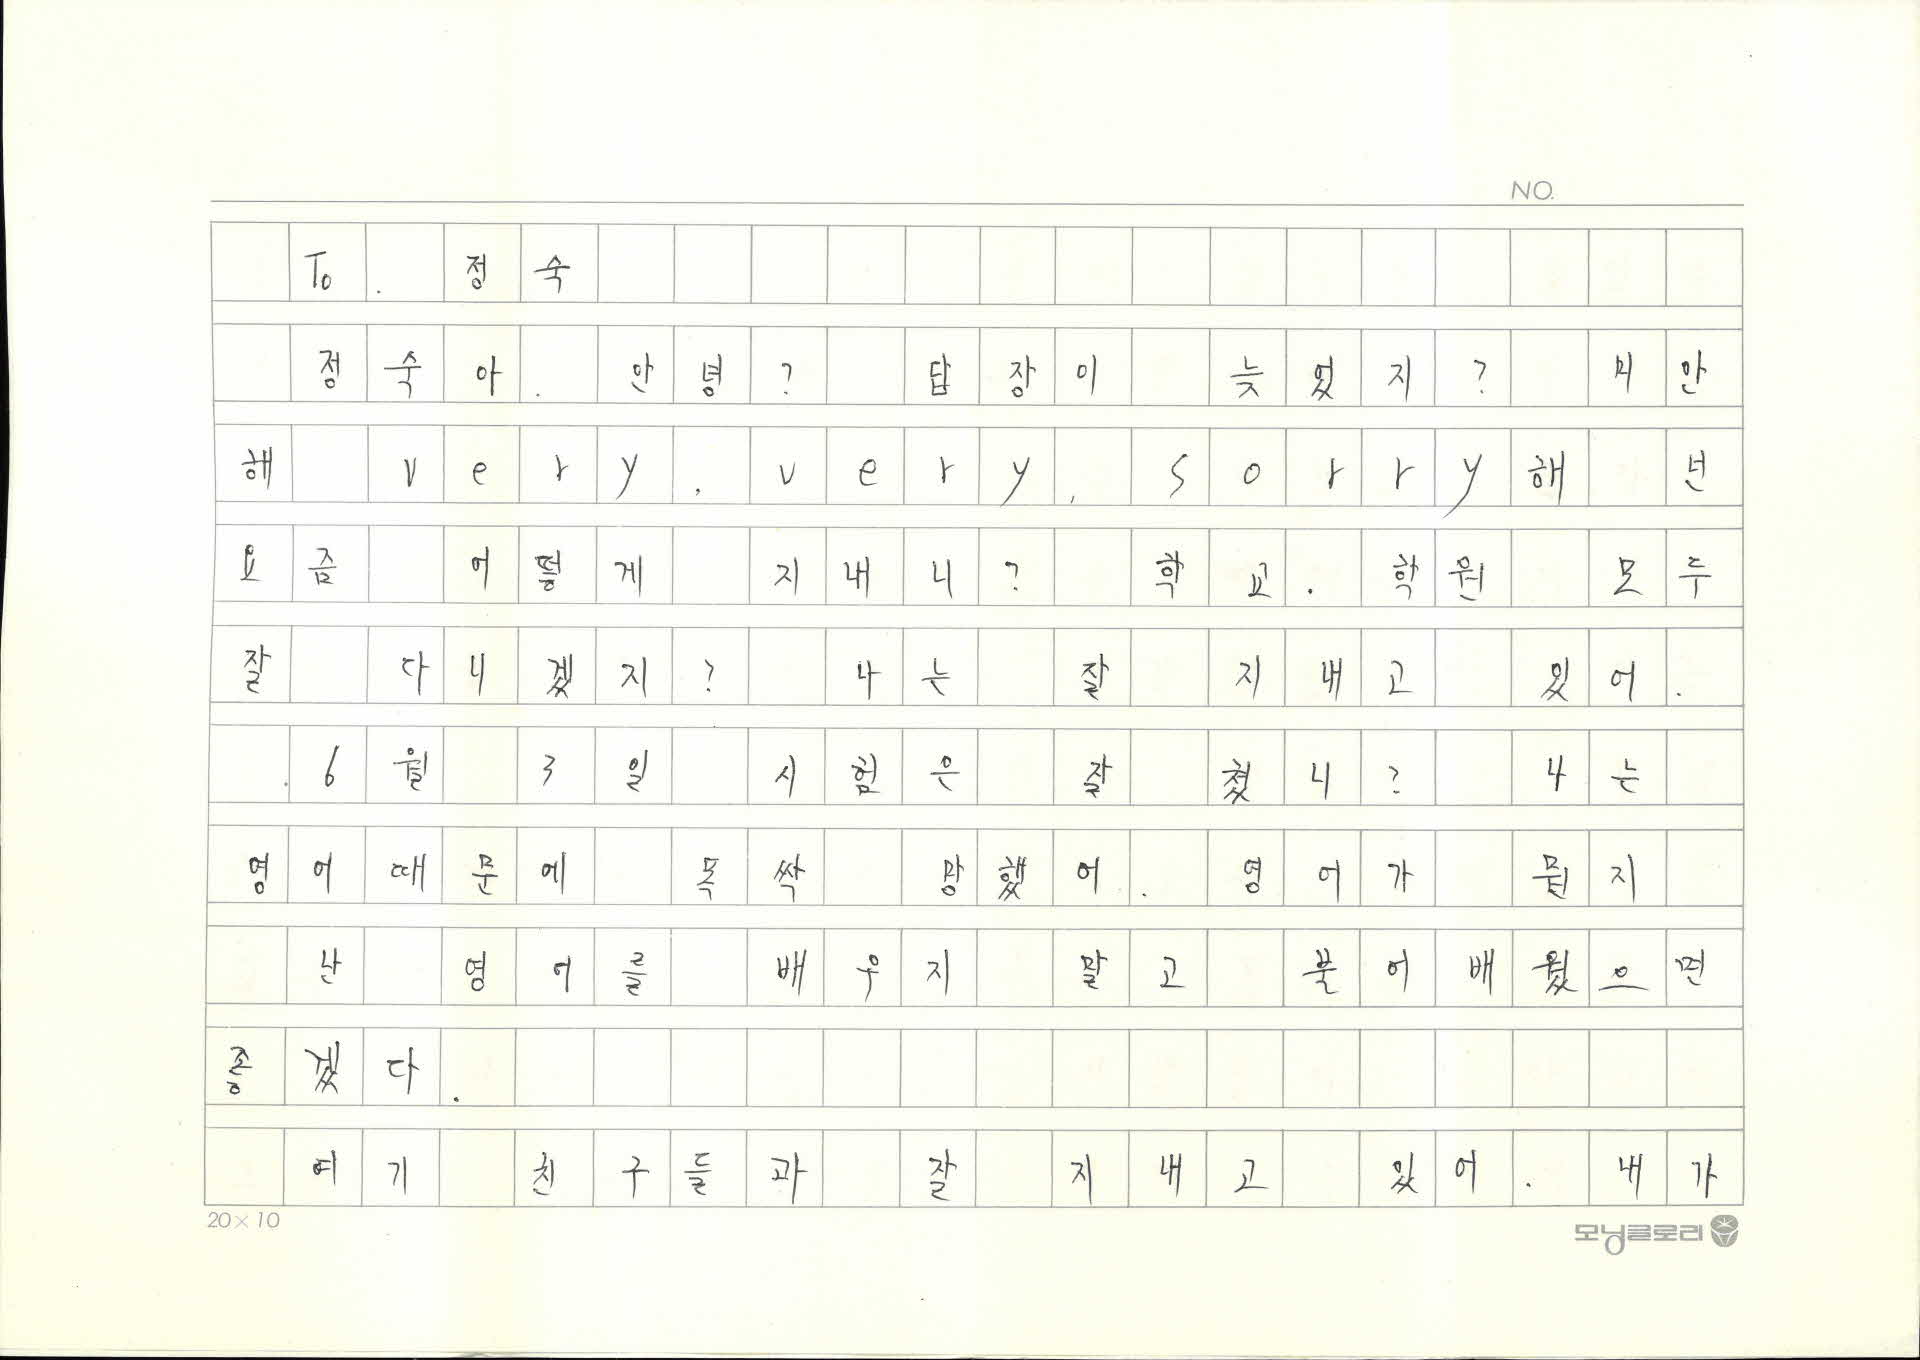 NO.
To. 정숙
정숙아. 안녕? 답장이 늦었지? 미안
해 very. very, sorry해 넌
요즘 어떻게 지내니? 학교. 학원 모두
잘 다니겠지? 나는 잘 지내고 있어.
6월 3일 시험은 잘 쳤니? 나는
영어때문에 폭싹 망했어. 영어가 뭔지
난 영어를 배우지 말고 불어배웠으면
좋겠다.
여기 친구들과 잘 지내고 있어. 내가
20×10
모닝글로리